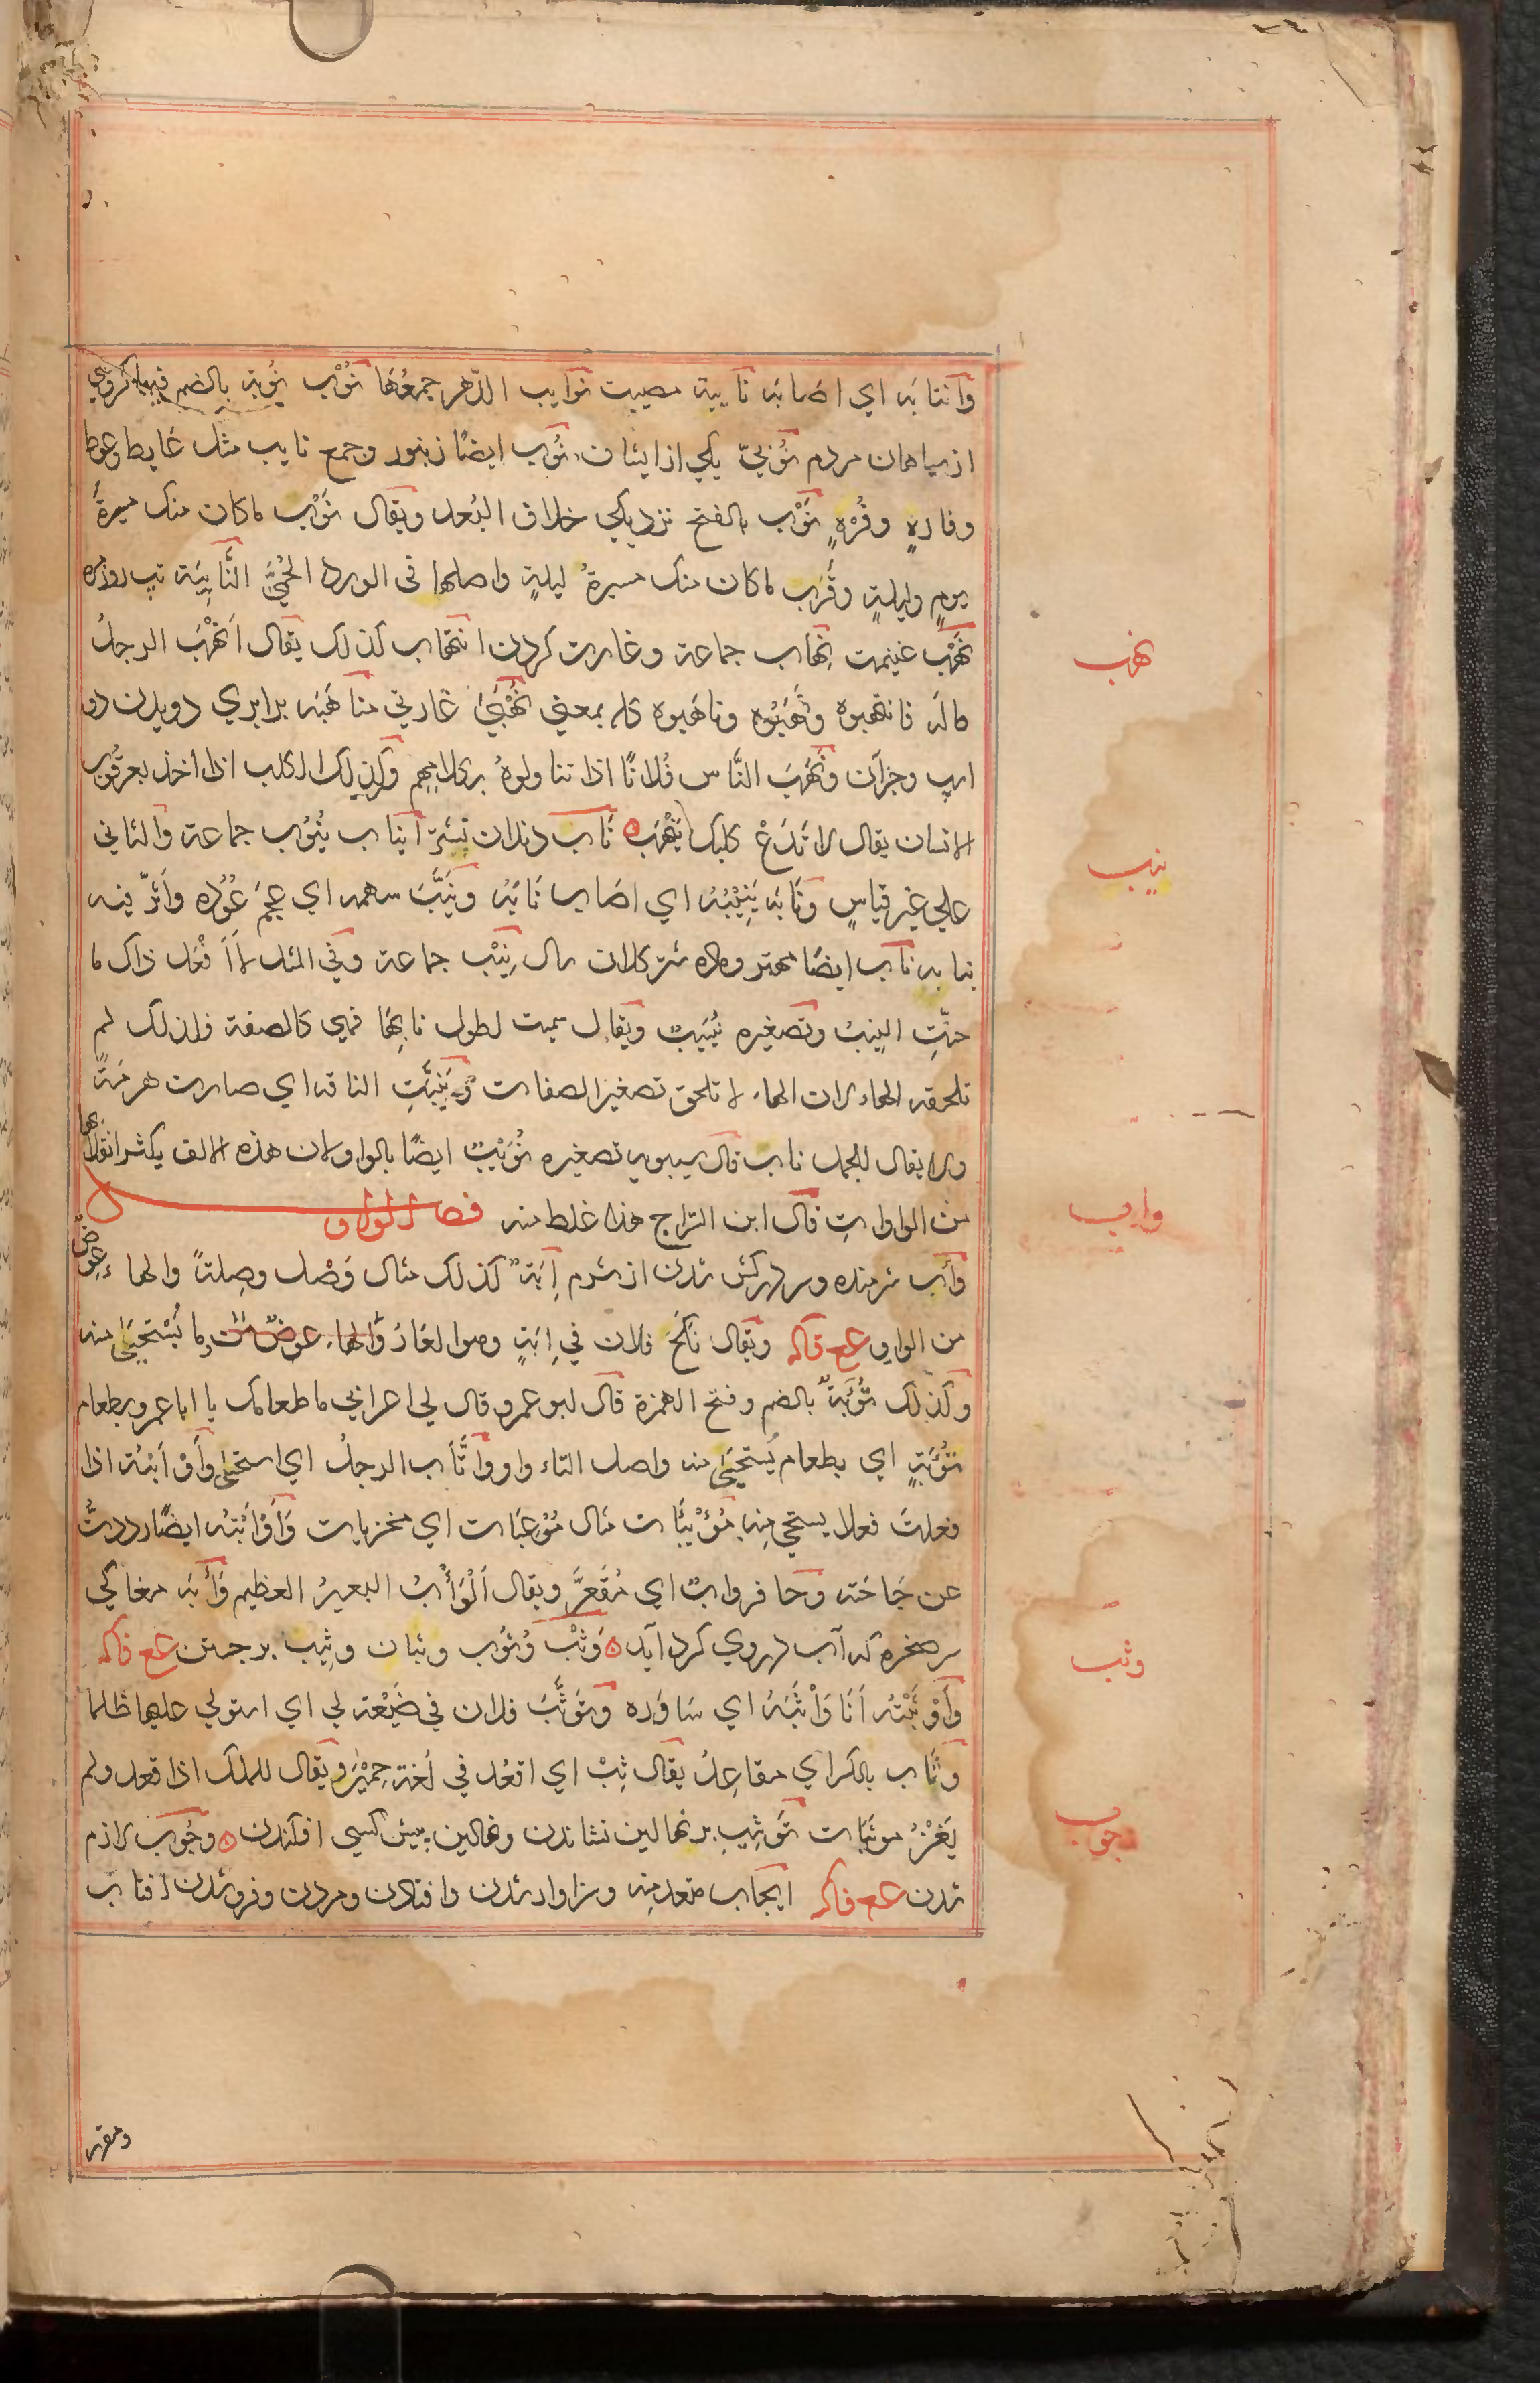 وانتابه اي اصابه نايبة مصيبت نوايب الدّهر جمعُها نُوَب نُوبة بالضم قبيله كروهي
از سياهان مردم نُوبيّ يكي از ايشان نُوب ايضًا زنبور وجمع نايب مثل غايط وغوط
وفارهٍ وفُرْهٍ نَوْب بالفتح نزديكي خلاف البُعد ويقال نَوْب ما كان منك مسيرةَ
يومٍ وليلةٍ وقَرَب ما كان منك مسيرةُ ليلةٍ واصلها في الورد الحُمّى النَّايِبَة تب روزمره
نَهْب غنيمت نِهاب جماعة وغارت كردن انتهاب كذلك يقال اَنْهَبَ الرجلُ
مالَه فانتهبوه ونَهَبُوه وناهَبوه كله بمعني نُهْبَىٰ غارتي مناهَبَه برابري دويدن دو
اسپ وجزآن ونَهَبَ النَّاس فُلانًا اذا تناولوهُ بكلامِهِم وكذلك الكلب اذا اخذ بعرقوب
الانسان يقال لا تَدَعْ كلبك يَنْهَب ه نَاب دندان نيشتر انياب نُيُوب جماعة والثاني
علي غير قياسٍ ونَابَه يَنِيْبُه اي اصاب نابَهُ ونَيَّبَ سهمه اي عجَمَ عُودَه واثّر فيه
بنابه ناب ايضًا مهتر وماده شتر كلان سال نِيْب جماعة وفي المثل لا اَفْعَل ذاك ما
حنّتِ النِيبُ وتصغيره نُيَيبٌ ويقال سميت لطول نابِها فهي كالصفة فلذلك لم
تلحقه الهاء لان الهاء لا تلحق تصغير الصفات ونَيَّبَتِ الناقه اي صارت هرمَةً
ولا يقال للجمل ناب قال سيبويه تصغيره نُوَيْبٌ ايضًا بالواو لان هذه الالف يكثر انقلابها
من الواوات قال ابن السّراج هذا غلط منه فصل الواو
وأب شرمنده وسر در كش شدن از شرم اِبَةٌ كذلك مثال وَصْل وصِلةً والهاء عِوضٌ
من الواو ع ع قاله ويقال نَكَحَ فلان في اِبَةٍ وهو العَارُ وما يُسْتحيَىٰ منه
وكذلك تُؤَبَةٌ بالضم وفتح الهمزة قال ابو عمرو قال لي اعرابي ما طعامك يا ابا عمرو بطعام
تُؤَبَةٍ اي بطعام يُستحيَىٰ منه واصل التاء واو واتَّأب الرجلُ اي استحيىٰ واَوْأبْتُه اذا
فعلتَ فعلا يستحيي منه مُؤْئِبَات مثال مُوْعِبَات اي مخزيات وَاَوْأبْتُه ايضًا رددتُّ
عن حَاجَته وحافر وابٌ اي مُقَعَّرٌ ويقال اَلْوَأْبُ البعيرُ العظيم وَأْبَه مغاكي
سر صخره كه آب در وي كرد آيد ه وَثْب وُثُوب وثبان وثِيب برجستن ع ع قاله
وَاَوْثَبْتُه اَنَا وَاثَبَهُ اي سَاوَره وتَوَثَّبَ فلان في ضَيْعَة لي اي استولي عليها ظلما
وِثَاب بالكسر اي مقاعِدُ يقال ثِبْ اي اقعُد في لُغة حِمْيَر ويقال للملك اذا قعد ولم
يَغْزُ موثبات تَوثِيب بر نهالين نشاندن ونهالين پيش كسي افكندن ه وجُوب لازم
شدن ع ع قاله ايجاب متعد منه وسزاوار شدن وافتادن ومردن وفرو شدن افتاب
نهب
نيب
واب
وثب
وجوب